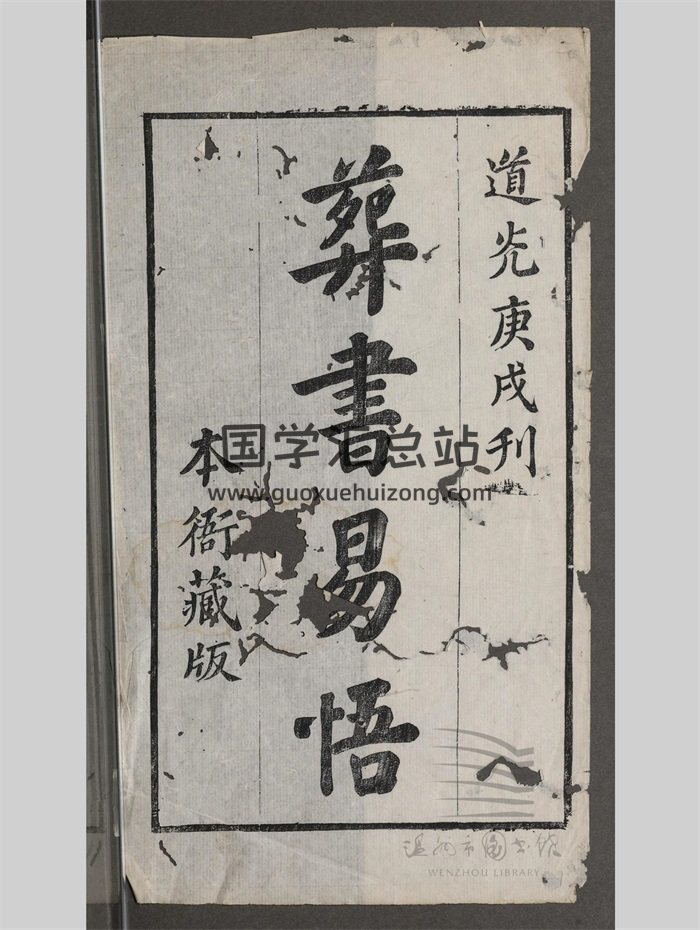 道光庚戌刊
葬書易悟
本衙藏版
国学汇总站
www.guoxuehuizong.com
温州市图书馆
WENZHOU LIBRARY